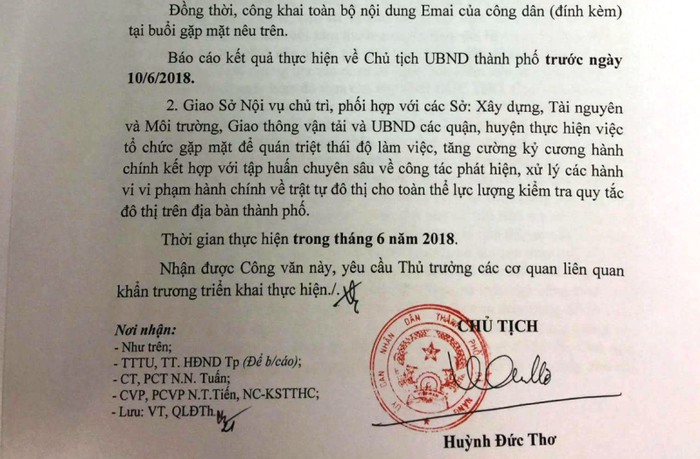 Đồng thời, công khai toàn bộ nội dung Emai của công dân (đính kèm)
tại buổi gặp mặt nêu trên.
Báo cáo kết quả thực hiện về Chủ tịch UBND thành phố trước ngày
10/6/2018.
2. Giao Sở Nội vụ chủ trì, phối hợp với các Sở: Xây dựng, Tài nguyên
và Môi trường, Giao thông vận tải và UBND các quận, huyện thực hiện việc
tổ chức gặp mặt để quán triệt thái độ làm việc, tăng cường kỷ cương hành
chính kết hợp với tập huấn chuyên sâu về công tác phát hiện, xử lý các hành
vi vi phạm hành chính về trật tự đô thị cho toàn thể lực lượng kiểm tra quy tắc
đô thị trên địa bàn thành phố.
Thời gian thực hiện trong tháng 6 năm 2018.
Nhận được Công văn này, yêu cầu Thủ trưởng các cơ quan liên quan
khẩn trương triển khai thực hiện./.
Nơi nhận:
- Như trên;
- TTTU, TT. HĐND Tp (Để b/cáo);
- CT, PCT N.N. Tuấn;
- CVP, PCVP N.T.Tiến, NC-KSTTHC;
- Lưu: VT, QLĐTh.
CHỦ TỊCH
ỦY BAN NHÂN DÂN THÀNH PHỐ
NẴNG
Huỳnh Đức Thơ